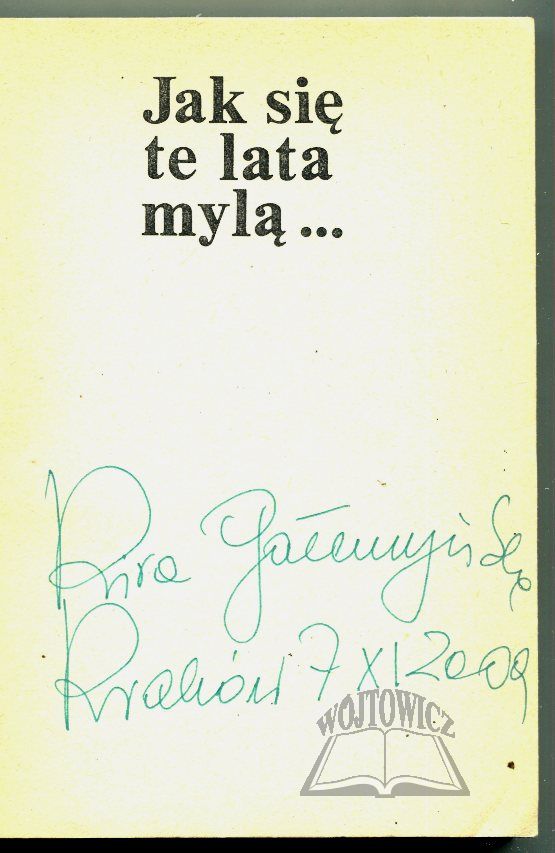 Jak się
te lata
mylą...
Kira Gałczyńska
Kraków 7 XI 2009
WÓJTOWICZ